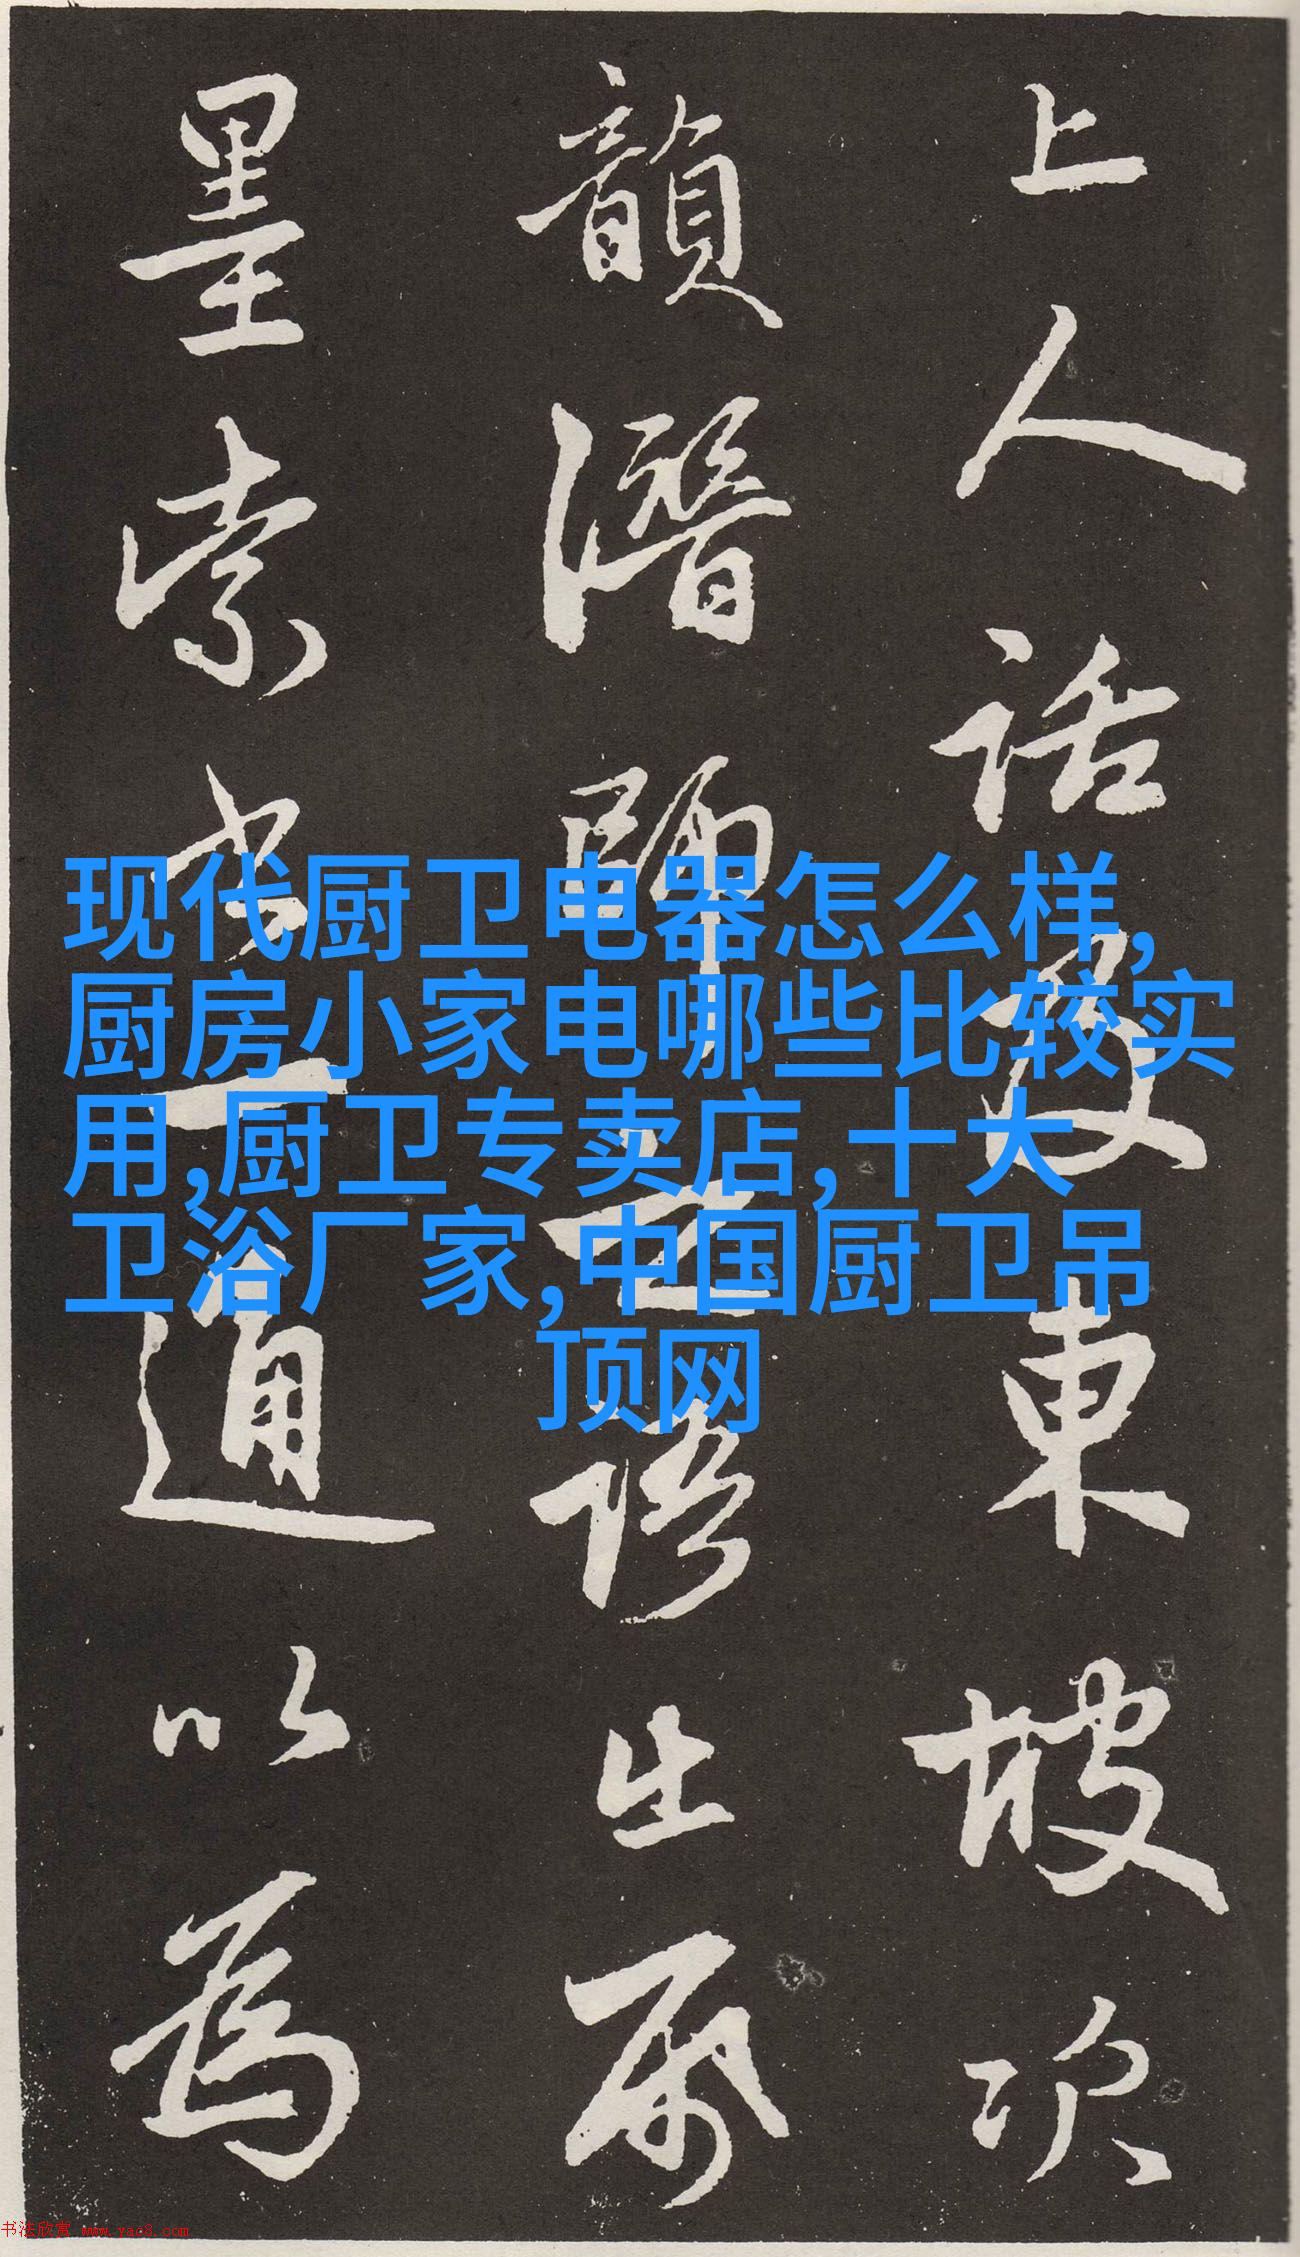 上人話及東坡次
韻潛師
墨索書一通以為
现代厨卫电器怎么样,
厨房小家电哪些比较实
用,厨卫专卖店,十大
卫浴厂家,中国厨卫吊
顶网
书法欣赏 www.yac8.com